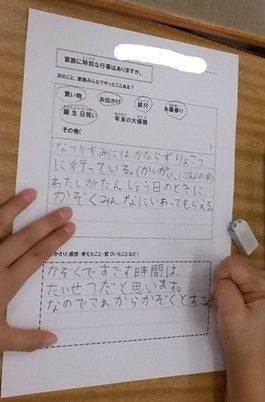 家族に特別な行事はありますか。
次のこと、家族みんなでやったことある？
買い物 お出かけ 旅行 お墓参り
誕生日祝い 年末の大掃除
その他(
なつやすみにはかならずりょこう
に行っている。(かいがい、にほんの中)
わたしがたんしょう日のときに、
かぞくみんなにいわってもらえる。
かえり(感想・考えたこと・気づいたことなど)
かぞくですごす時間は、
たいせつだと思います。
なのでこれからかぞくとすご